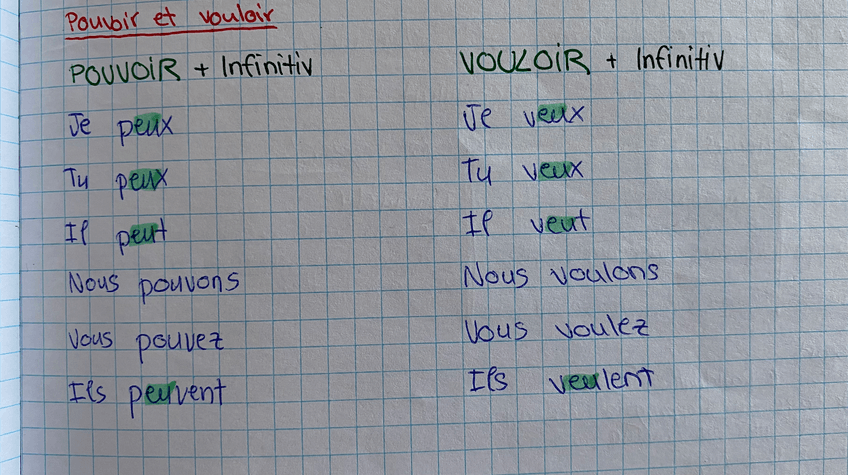 Pouvoir et vouloir
POUVOIR + Infinitiv
Je peux
Tu peux
Il peut
Nous pouvons
Vous pouvez
Ils peuvent
VOULOIR + Infinitiv
Je veux
Tu veux
Il veut
Nous voulons
Vous voulez
Ils veulent